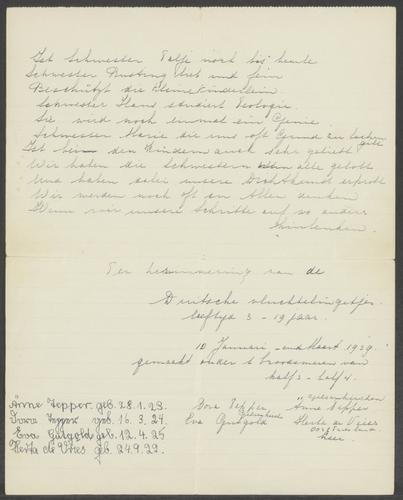 Ist Schwester Telje noch bis heute
Schwester Rusting und fein
Beschützt die Kleinekinderlein.
Schwester Hans studiert Teologie.
Sie wird noch einmal ein Genie.
Schwester Marie die uns oft Grund zu lachen gibt
Ist bei den Kindern auch sehr geliebt
Wir haben die Schwestern alle gelobt
Und haben unsere Dichtkunst erprobt
Wir werden noch oft an Alles denken
Wenn wir unsere Schritte auf
hinlenken.
Ter herinnering van de
Duitsche vluchtelingetjes
leeftyd 3 - 19 jaar.
10 Januari - end Maart 1939.
gemaakt onder 't van
half 3 - half 4.
Änne Zepper geb. 28.1.23.
Dora Zepper geb. 16.3.24.
Eva Gutgold geb. 12.4.25
Herta de Vries geb. 24.9.22.
Dora Zepper Anne Zepper
Eva Gutgold Herta de Vries